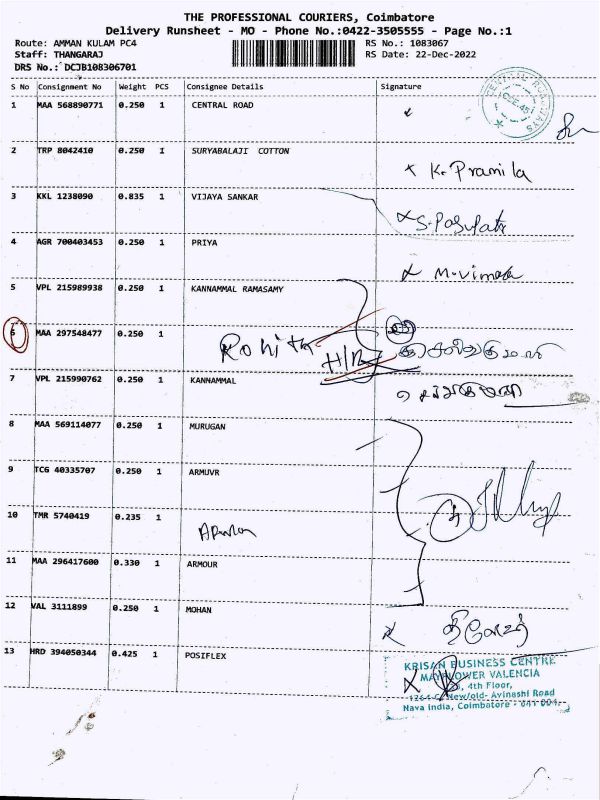 THE PROFESSIONAL COURIERS, Coimbatore
Delivery Runsheet - MO - Phone No.:0422-3505555 - Page No.:1
Route: AMMAN KULAM PC4 RS No.: 1083067
Staff: THANGARAJ RS Date: 22-Dec-2022
DRS No.: DCJB108306701
S No Consignment No Weight PCS Consignee Details Signature
1 MAA 568890771 0.250 1 CENTRAL ROAD
CENTRAL ROADWAYS
2 TRP 8042410 0.250 1 SURYABALAJI COTTON
K. Pramila
3 KKL 1238090 0.835 1 VIJAYA SANKAR
S. Pasupati
4 AGR 700403453 0.250 1 PRIYA
M. Vimala
5 VPL 215989938 0.250 1 KANNAMMAL RAMASAMY
6 MAA 297548477 0.250 1 Rohith H/B
7 VPL 215990762 0.250 1 KANNAMMAL
8 MAA 569114077 0.250 1 MURUGAN
9 TCG 40335707 0.250 1 ARMUVR
10 TMR 5740419 0.235 1
11 MAA 296417600 0.330 1 ARMOUR
12 VAL 3111899 0.250 1 MOHAN
13 HRD 394050344 0.425 1 POSIFLEX
KRISAN BUSINESS CENTRE
MAYFLOWER VALENCIA
4th Floor,
New/old- Avinashi Road
Nava India, Coimbatore - 641 004.